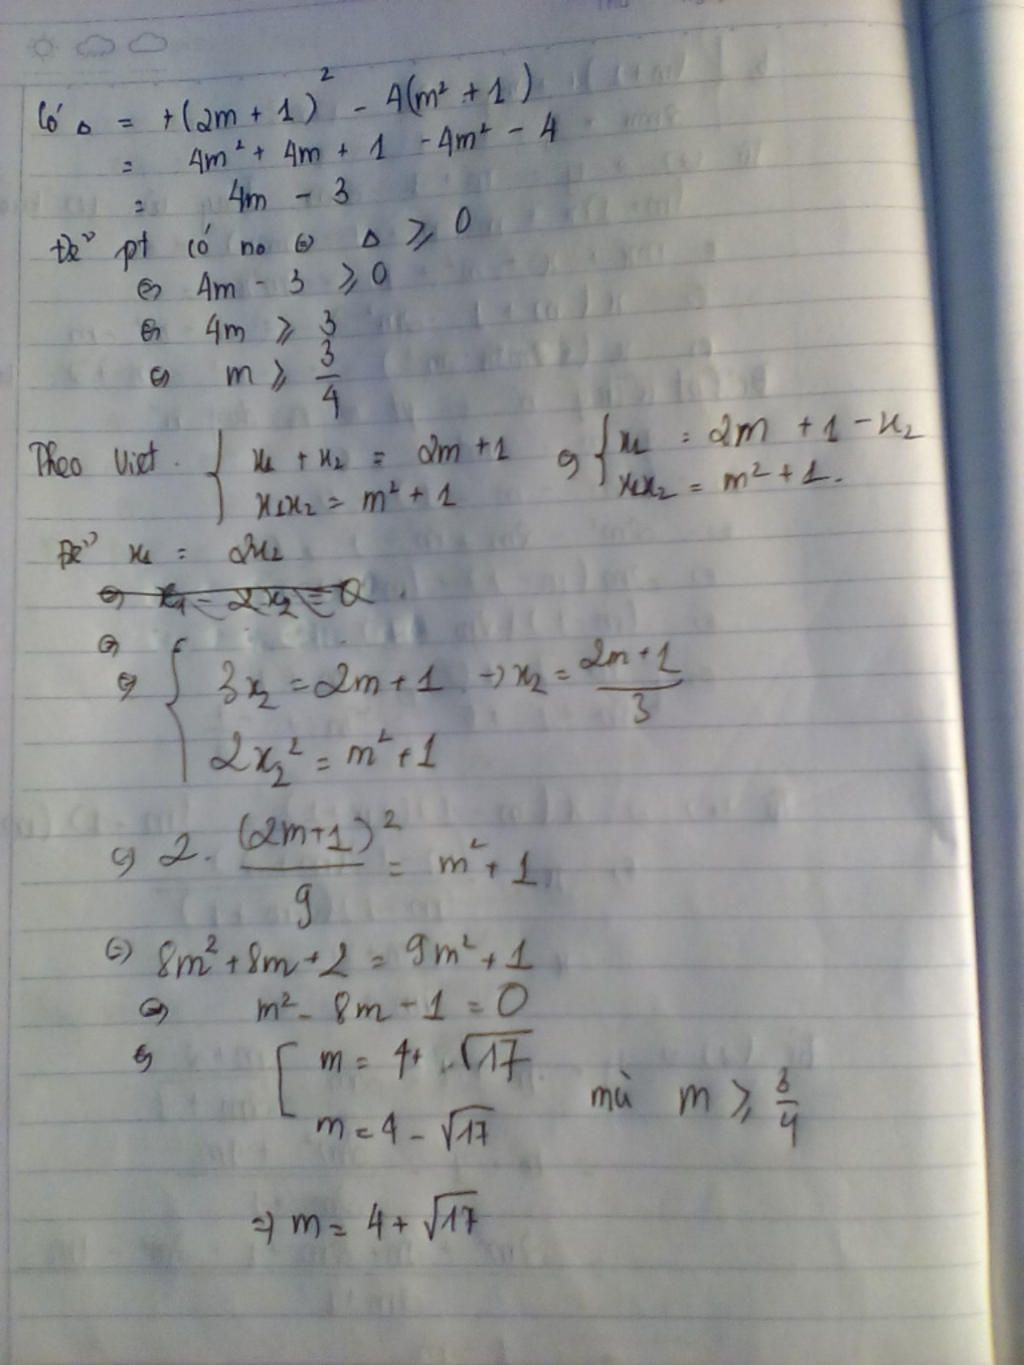 Có Δ = +(2m + 1)² - 4(m² + 1)
= 4m² + 4m + 1 - 4m² - 4
= 4m - 3
Để pt có no ⇔ Δ ⩾ 0
⇔ 4m - 3 ⩾ 0
⇔ 4m ⩾ 3
⇔ m ⩾ 3/4
Theo Viet. { x₁ + x₂ = 2m + 1 ⇔ { x₁ = 2m + 1 - x₂
x₁x₂ = m² + 1 x₁x₂ = m² + 1.
Để x₁ = 2x₂
⇔ x₁ - 2x₂ = 0
⇔
⇔ { 3x₂ = 2m + 1 → x₂ = (2m + 1)/3
2x₂² = m² + 1
⇔ 2. (2m+1)²/9 = m² + 1
⇔ 8m² + 8m + 2 = 9m² + 1
⇔ m² - 8m - 1 = 0
⇔ [ m = 4 + √17
m = 4 - √17 mà m ⩾ 3/4
⇒ m = 4 + √17